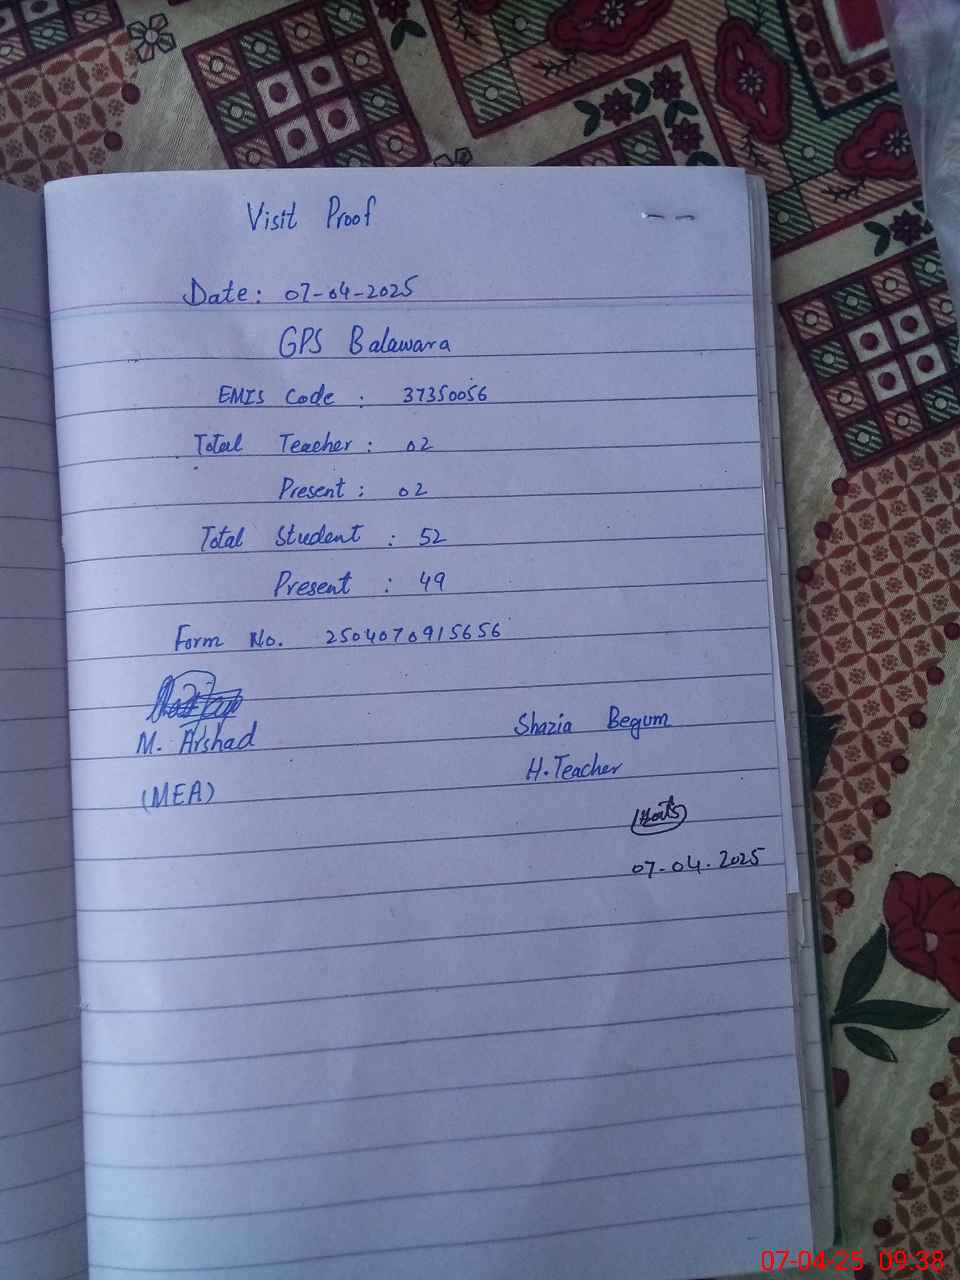 Visit Proof
Date: 07-04-2025
GPS Balawara
EMIS Code : 37350056
Total Teacher: 02
Present: 02
Total Student : 52
Present : 49
Form No. 2504070915656
M. Arshad
(MEA)
Shazia Begum
H.Teacher
07-04-2025
07-04-25 09:38